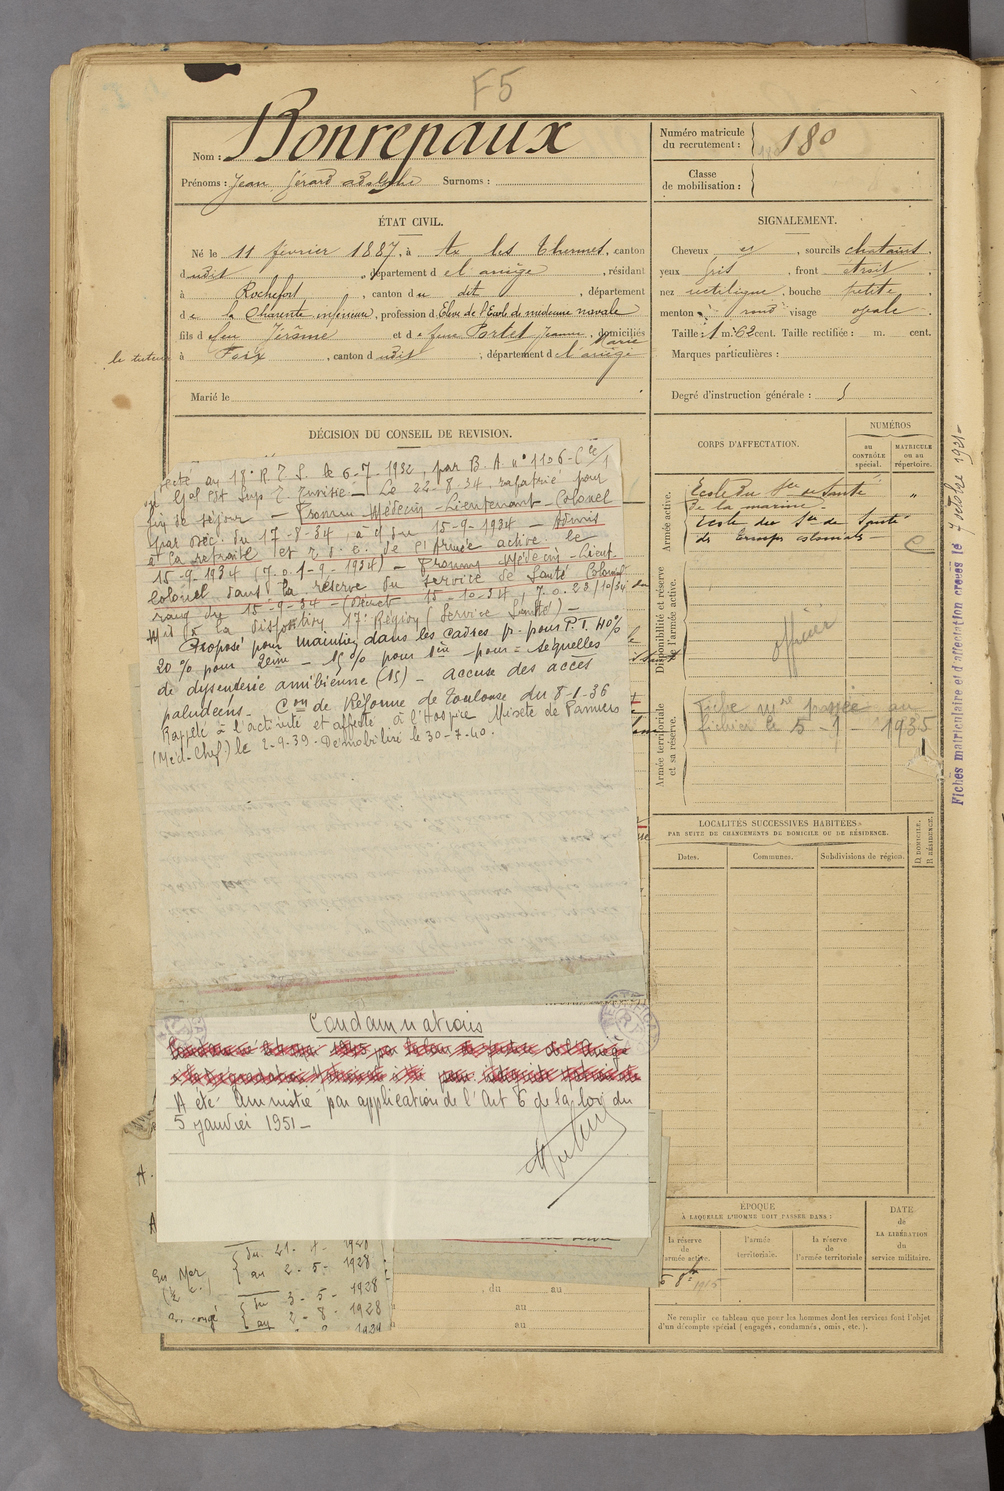 F5
Nom : Bonrepaux
Prénoms : Jean Gérard Adolphe Surnoms :
Numéro matricule du recrutement : 180
Classe de mobilisation :
ÉTAT CIVIL.
Né le 11 février 1887, à Ax les Thermes, canton
dudit, département de l'ariège, résidant
à Rochefort, canton du dit, département
de la Charente inférieure, profession d'Elève de l'Ecole de médecine navale
fils de feu Jérôme et de feue Portet Jeanne Marie, domiciliés
le tuteur à Foix, canton dudit, département de l'ariège
Marié le
SIGNALEMENT.
Cheveux et, sourcils chatains.
yeux gris, front étroit.
nez rectiligne, bouche petite.
menton rond visage ovale.
Taille : 1 m. 62 cent. Taille rectifiée : m. cent.
Marques particulières :
Degré d'instruction générale : 5
DÉCISION DU CONSEIL DE REVISION.
fecté au 18e R.T.S. le 6-7-1932, par B.A. n° 1106-C/1
du Gal Ct Sup. T. Tunisie - Le 22-8-34, rapatrié pour
fin de séjour - Promu Médecin-Lieutenant-Colonel
par déc. du 17-8-34, à c. du 15-9-1934 - Admis
à la retraite et r.d.c. de l'armée active le
15-9-1934 (J.O. 1-9-1934) - Promu Médecin-Lieut-
Colonel dans la réserve du service de Santé Colonial
rang du 15-9-34 - (Décret 15-10-34, J.O. 28/10/34)
Mis à la disposition 17e Région (Service Santé) -
Proposé pour maintien dans les cadres p. pour P.T. 40%
20% pour 2ème - 15% pour 1ère - pour = Séquelles
de dysenterie amibienne (15) - accuse des accès
paludéens - Con de Réforme de Toulouse du 8-1-36
Rappelé à l'activité et affecté à l'Hospice Mixte de Pamiers
(Med-Chef) le 2-9-39. Démobilisé le 30-7-40.
Condamnations
A été Amnistié par application de l'Art 6 de la loi du
5 janvier 1951 -
A.
A
du 21- 1- 1928
En Mer au 2-5-1928
du 3-5-1928
En congé au 2-8-1928
, du au
au
au
CORPS D'AFFECTATION.
NUMÉROS
AU CONTRÔLE spécial.
MATRICULE ou au répertoire.
Armée active.
Ecole du Sce de Santé "
de la marine -
Ecole du Sce de Santé
des troupes coloniales -
Disponibilité et réserve de l'armée active.
officier
Armée territoriale et sa réserve.
Fiche mle passée au
fichier le 5-1-1935
LOCALITÉS SUCCESSIVES HABITÉES
PAR SUITE DE CHANGEMENTS DE DOMICILE OU DE RÉSIDENCE.
Dates. Communes. Subdivisions de région. D. DOMICILE. R. RÉSIDENCE.
ÉPOQUE
À LAQUELLE L'HOMME DOIT PASSER DANS :
la réserve de l'armée active.
l'armée territoriale.
la réserve de l'armée territoriale
DATE de LA LIBÉRATION du service militaire.
1915
Ne remplir ce tableau que pour les hommes dont les services font l'objet
d'un décompte spécial (engagés, condamnés, omis, etc.).
Fiches matriculaire et d'affectation créées le 7 octobre 1921-